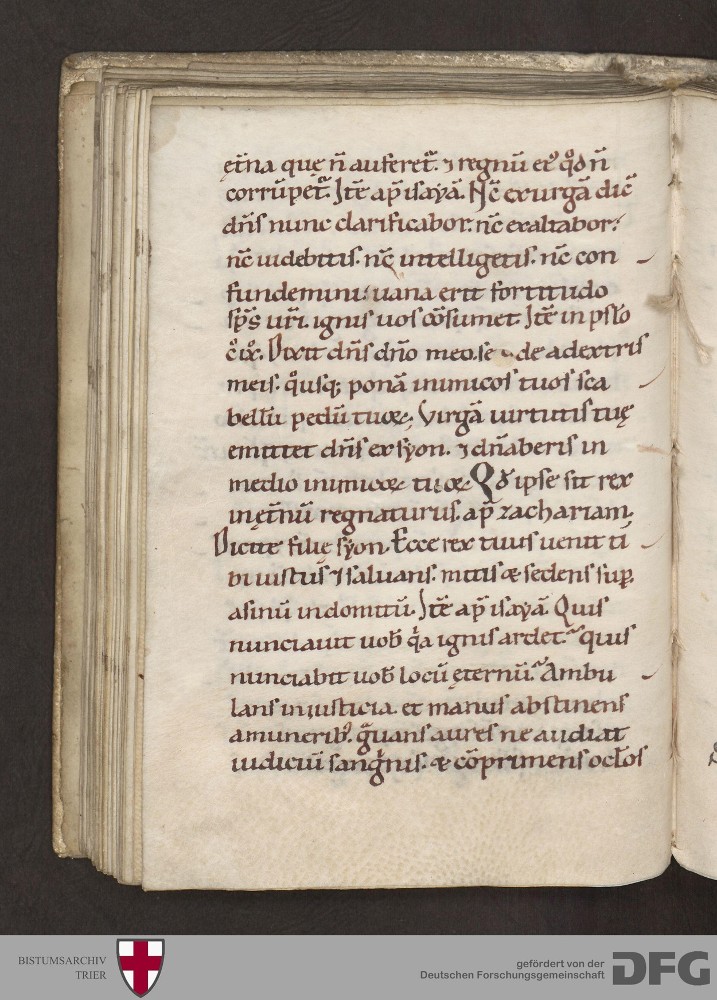 ęt̄na quę n̄ auferet᷑. ⁊ regnū ei᷒ qd̕ n̄
corrūpet᷑. Itē ap̄ isayā. Nc̄ exurgā dic̄
dn̄s nunc clarificabor. nc̄ exaltabor.
nc̄ uidebitis. nc̄ intelligetis. nc̄ con
fundemini. uana erit fortitudo
sp̄s ur̄i. ignis uos cōsumet. Itē in psl̄o
c̊.ix. Dixit dn̄s dn̄o meo. se de a dextris
meis. q̊usq; ponā inimicos tuos sca
bellū pedū tuoꝝ. Virgā uirtutis tuę
emittet dn̄s ex syon. ⁊ dn̄aberis in
medio inimicoꝝ tuoꝝ. Qđ ipse sit rex
in ęt̄nū regnaturus. ap̄ zachariam.
Dicite filie syon. Ecce rex tuus uenit ti
bi iustus ⁊ saluans. mitis & sedens sup̄
asinū indomitū. Itē ap̄ isayā. Quis
nunciauit uob̄ qͣa ignis ardet. quis
nunciabit uob̄ locū ęternū. Ambu
lans in iusticia. et manus abstinens
a munerib᷒. gͣuans aures ne audiat
iudiciū sangͥnis. & cōprimens ocl̄os
BISTUMSARCHIV
TRIER
gefördert von der
Deutschen Forschungsgemeinschaft
DFG